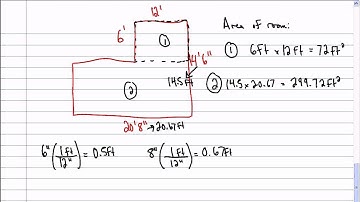 12'
Area of room:
6'
①
① 6ft x 12ft = 72ft²
14'6"
14.5ft
②
② 14.5 x 20.67 = 299.72ft²
20'8" → 20.67ft
6" (1ft/12") = 0.5ft 8" (1ft/12") = 0.67ft